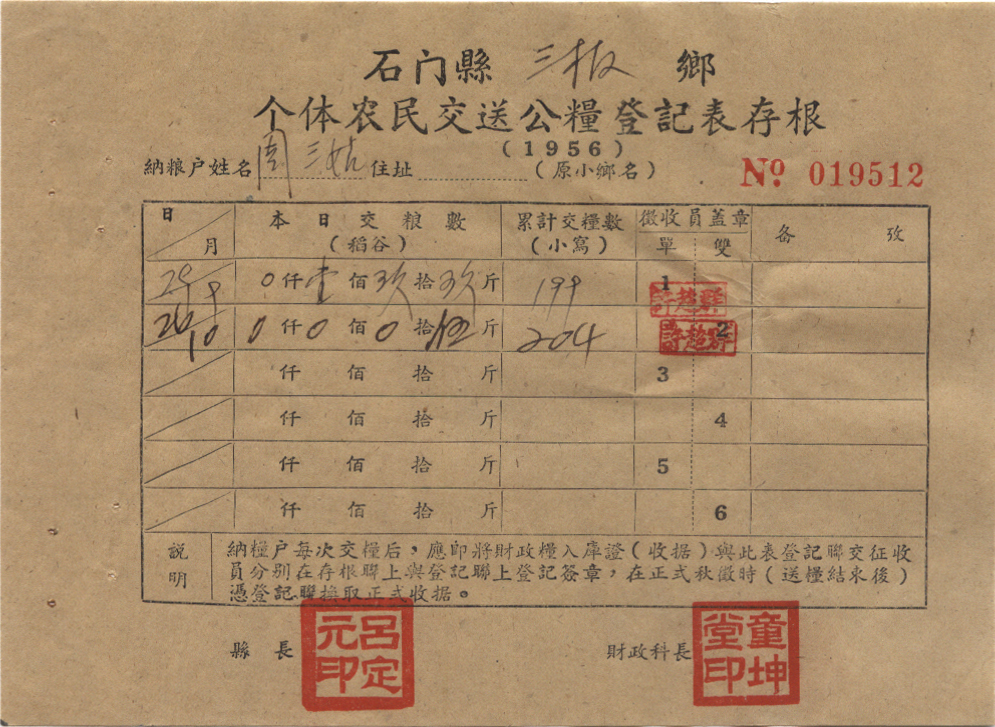 石门縣 三板 鄉
个体农民交送公糧登記表存根
(1956)
納粮户姓名 周三姑 住址 (原小鄉名)
№ 019512
日 月 本日交粮數 (稻谷) 累計交糧數 (小寫) 徵收員盖章 單 雙 备攷
29 9 0仟壹佰玖拾玖斤 199 1 許超群
26 10 0仟0佰0拾伍斤 204 2 許超群
仟 佰 拾 斤 3
仟 佰 拾 斤 4
仟 佰 拾 斤 5
仟 佰 拾 斤 6
説明
納糧户每次交糧后,應即將財政糧入庫證(收据)與此表登記聯交征收
員分别在存根聯上與登記聯上登記簽章,在正式秋徵時(送糧結束後)
憑登記聯换取正式收据。
縣長 呂定元印 財政科長 童坤堂印